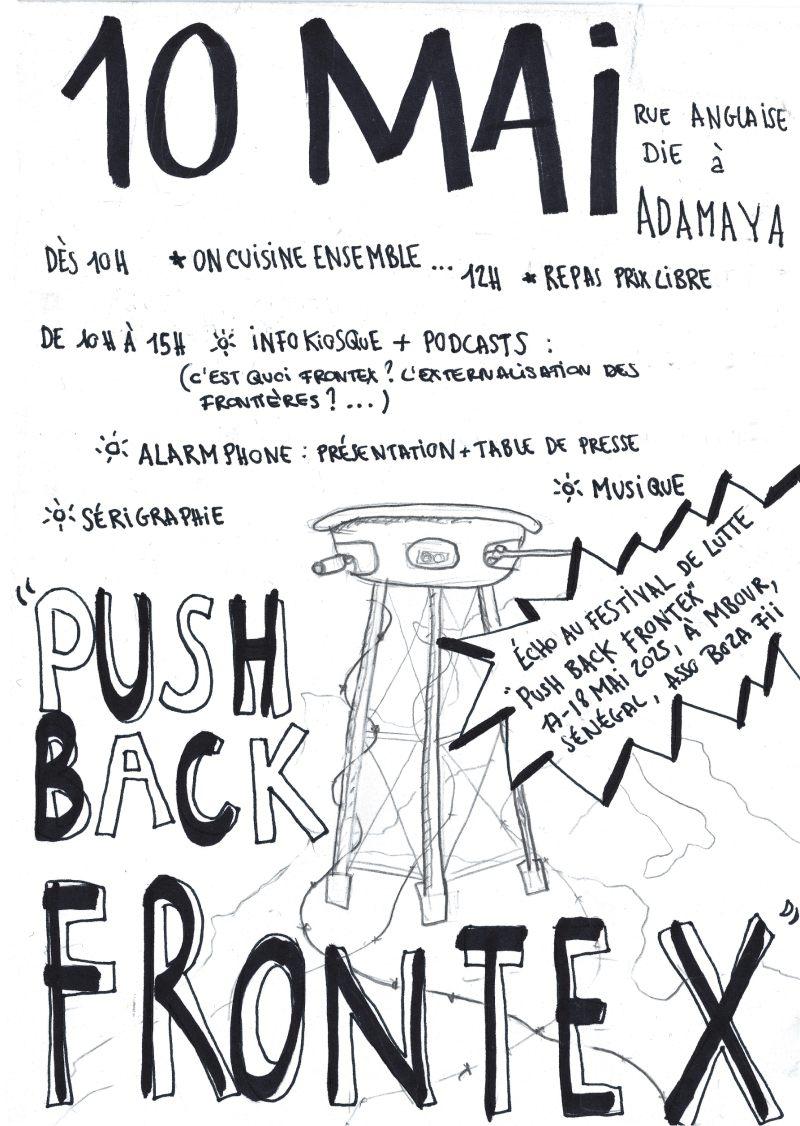 10 MAi
RUE ANGLAiSE
DiE à
ADAMAYA
DÈS 10H * ON CUiSiNE ENSEMBLE ... 12H * REPAS PRiX LiBRE
DE 10H À 15H iNFOKiOSQUE + PODCASTS :
(C'EST QUOi FRONTEX ? L'EXTERNALiSATiON DES
FRONTiÈRES ? ...)
ALARM PHONE : PRÉSENTATiON + TABLE DE PRESSE
MUSiQUE
SÉRiGRAPHiE
ÉCHO AU FESTiVAL DE LUTTE
"PUSH BACK FRONTEX"
17-18 MAi 2025, À MBOUR,
SÉNÉGAL, ASSO BOZA Fii
"PUSH
BACK
FRONTEX"